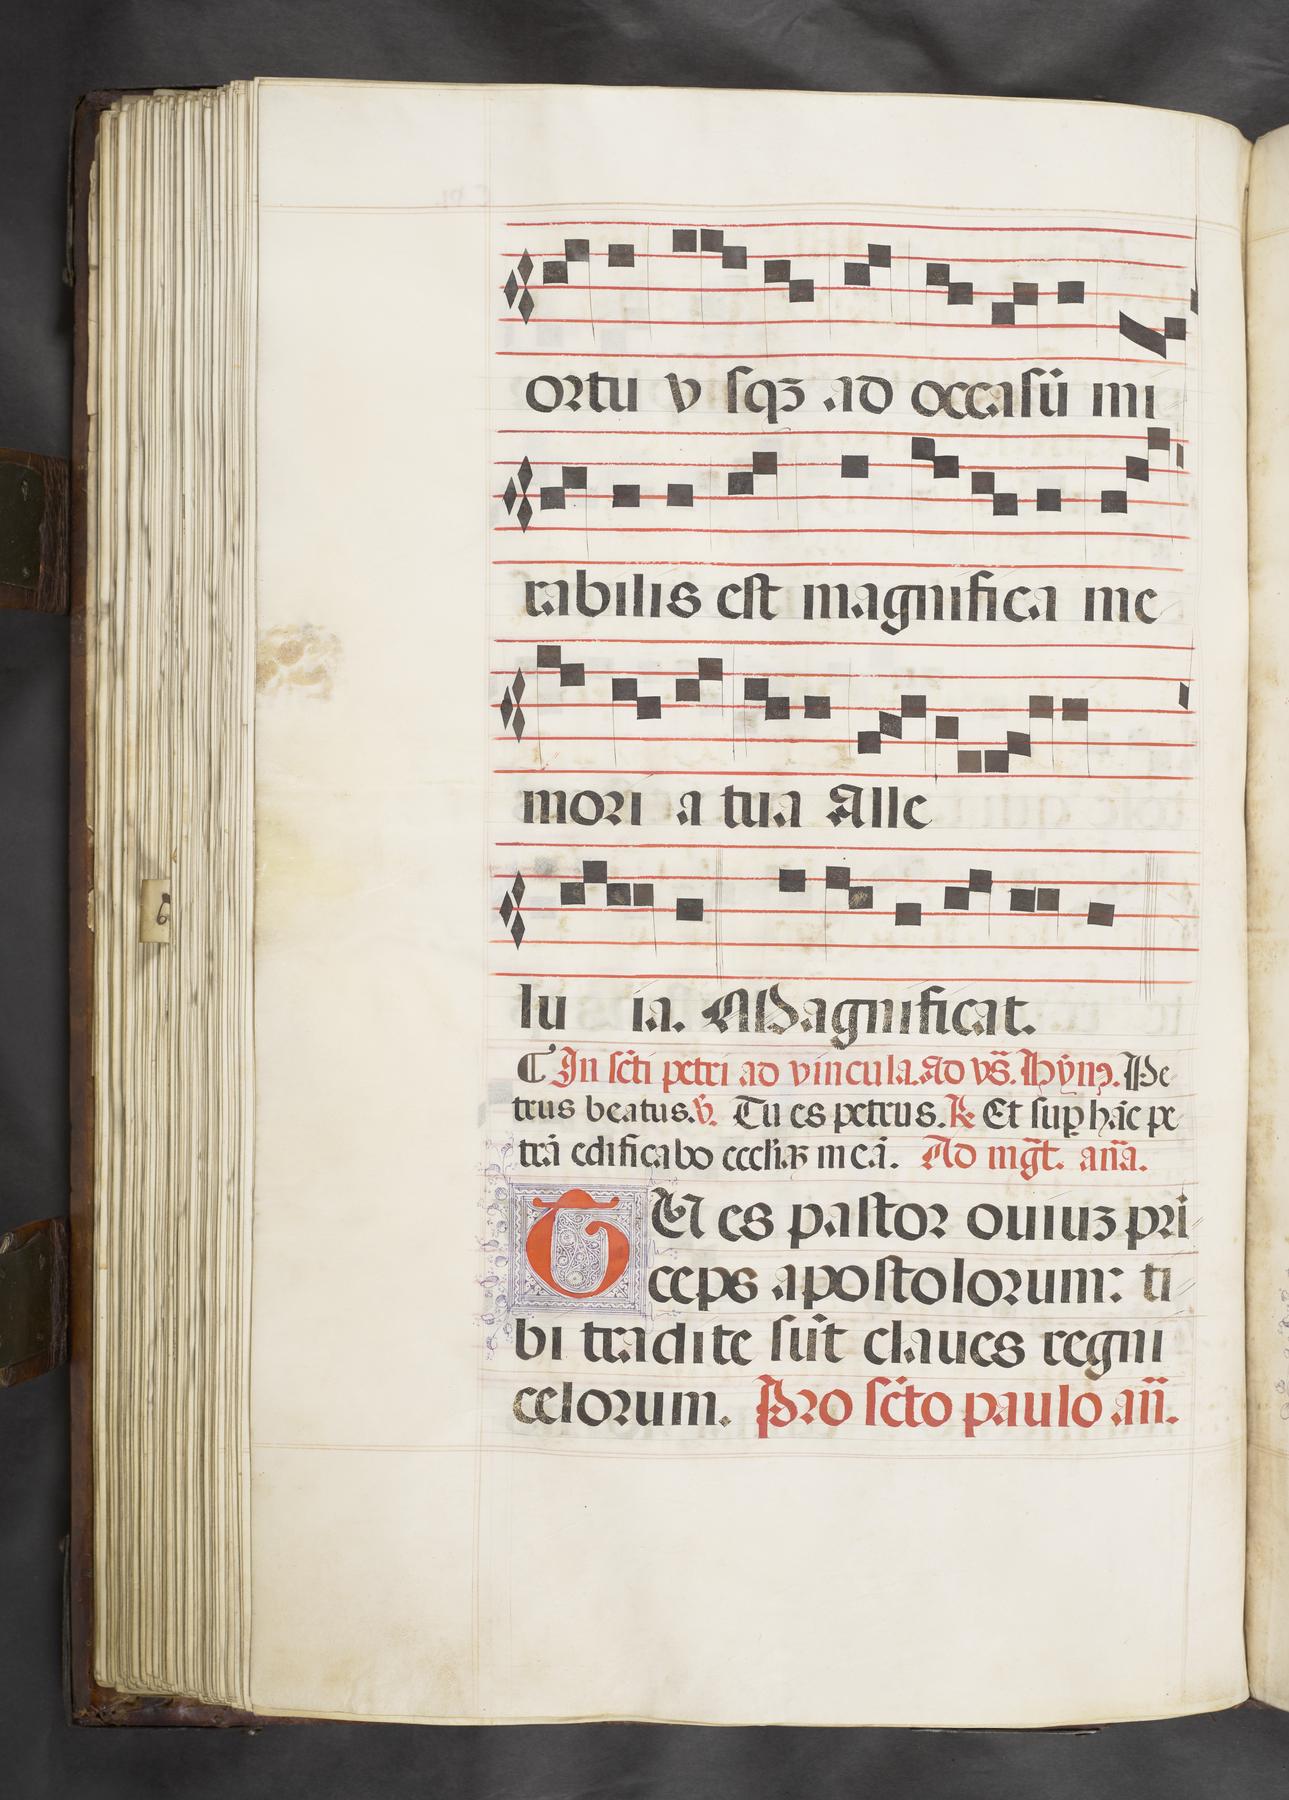 ortu v sqꝫ ad occasū mi
rabilis est magnifica me
mori a tua Alle
lu ia. Magnificat.
¶ In scti petri ad vincula. Ad vs̄. Hymꝯ. Pe
trus beatus. ℣. Tu es petrus. ℟ Et suꝑ hāc pe
trā edificabo eccliaꝫ meā. Ad mgt̄. ana.
TU es pastor ouiuꝫ pri
ceps apostolorum: ti
bi tradite sūt claues regni
celorum. Pro scto paulo añ.
6